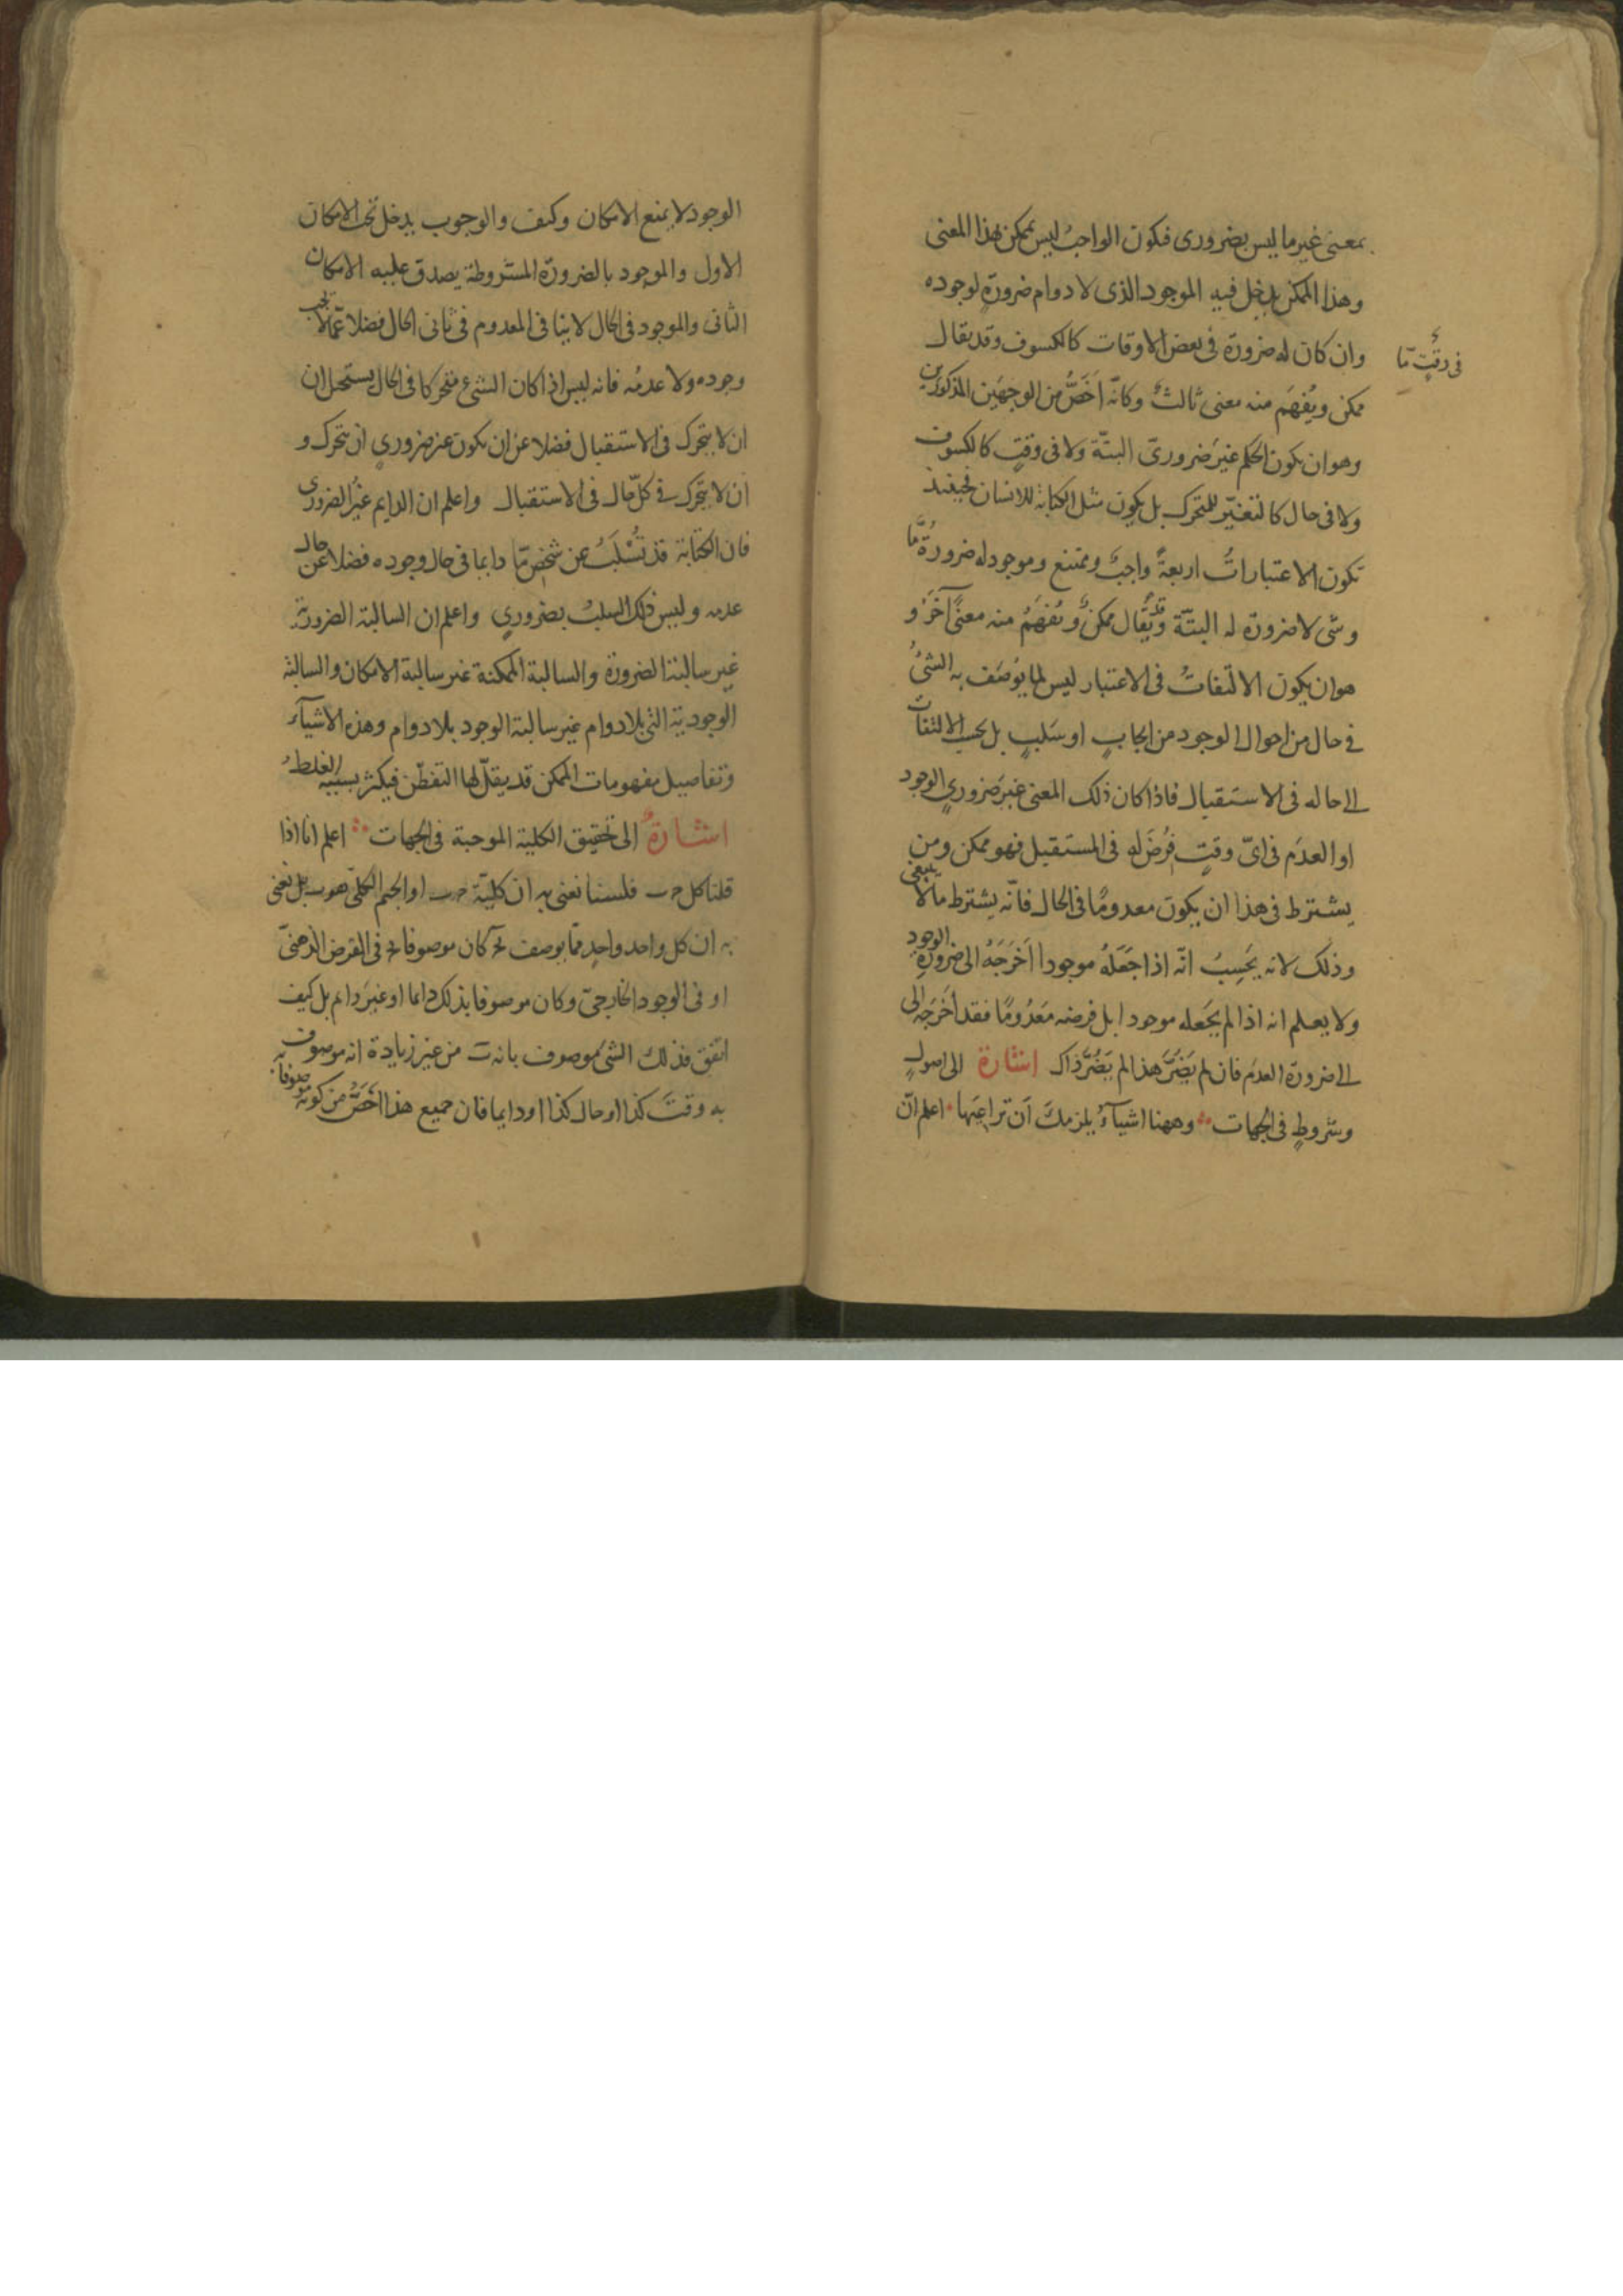 بمعنى غير ما ليس بضرورى فيكون الواجبُ ليس بممكن بهذا المعنى
وهذا الممكن يدخل فيه الموجود الذى لا دوام ضرورةٍ لوجوده
وان كان له ضرورة فى بعض الاوقات كالكسوف وقد يقال
فى وقتٍ مّا
ممكن ويُفهَم منه معنى ثالثٌ وكانّه اَخَصُّ من الوجهَين المذكورَين
وهو ان يكون الحكم غيرَ ضرورىّ البتّة ولا فى وقتٍ كالكسوف
ولا فى حال كالتغيّر للمتحرك بل يكون مثل الكتابة للانسان فحينئذ
تكون الاعتباراتُ اربعةً واجبٌ وممتنع وموجود له ضرورةٌ مّا
وشى لا ضرورة له البتّة وقد يُقال ممكنٌ ويُفهَمُ منه معنًى آخَرُ و
هو ان يكون الالتفاتُ فى الاعتبار ليس لما يُوصَف به الشئُ
فى حال من احوال الوجود من ايجابٍ او سَلبٍ بل بحسب الالتفات
الى حاله فى الاستقبال فاذا كان ذلك المعنى غيرَ ضرورىِ الوجود
او العدَم فى اىّ وقتٍ فُرضَ له فى المستقبل فهو ممكن ومن
يشترط فى هذا ان يكون معدومًا فى الحال فانّه يشترط ما لا ينبغى
وذلك لانه يَحَسِبُ انّه اذا جَعَلَهُ موجودا اَخرَجَهُ الى ضرورةِ الوجود
ولا يعلم انه اذا لم يجَعله موجودا بل فرضه مَعدُومًا فقد اَخرَجَه الى
الى ضرورة العدَم فان لم يَضُرَّ هذا لم يَضُرَّ ذاك اشارة الى اصولٍ
وشروطٍ فى الجهات وههنا اشيآءُ يلزمكَ اَن تراعيَها اعلم انّ
الوجود لا يمنع الامكان وكيف والوجوب يدخل تحت الامكان
الاول والموجود بالضرورة المشروطة يصدق عليه الامكان
الثانى والموجود فى الحال لا ينافى المعدوم فى ثانى الحال فضلا عمّا لا يجب
وجوده ولا عدمُه فانه ليس اذا كان الشئ متحركا فى الحال يستحيل ان
ان لا يتحرك فى الاستقبال فضلا عن ان يكون غير ضرورىٍ ان يتحرك و
ان لا يتحرك فى كلّ حال فى الاستقبال واعلم ان الدايم غيُر الضرورى
فان الكتابة قد تُسْلَبُ عن شخصٍ مّا دايما فى حال وجوده فضلا عن حال
عدمه وليس ذلك السلبُ بضرورىٍ واعلم ان السالبة الضرورية
غير سالبة الضرورة والسالبة الممكنة غير سالبة الامكان والسالبة
الوجودية التى بلا دوام غير سالبة الوجود بلا دوام وهذه الاشيآء
وتفاصيل مفهومات الممكن قد يقلّ لها التفطّن فيكثر بسببه الغلطُ
اشارةٌ الى تحقيق الكلية الموجبة فى الجهات اعلم انا اذا
قلنا كل ج ب فلسنا نعنى به ان كليّة ج ب او الجيم الكلىّ هو ب بل نعنى
به ان كل واحد واحدٍ ممّا يوصف بج كان موصوفا بج فى الفرض الذهنىّ
او فى الوجود الخارجىّ وكان موصوفا بذلك دايما او غيرَ دايم بل كيف
اتفق فذلك الشئ موصوف بانه ب من غير زيادة انه موصوف به
به وقتَ كذا او حال كذا او دايما فان جميع هذا اَخَصُّ من كونه موصوفا به